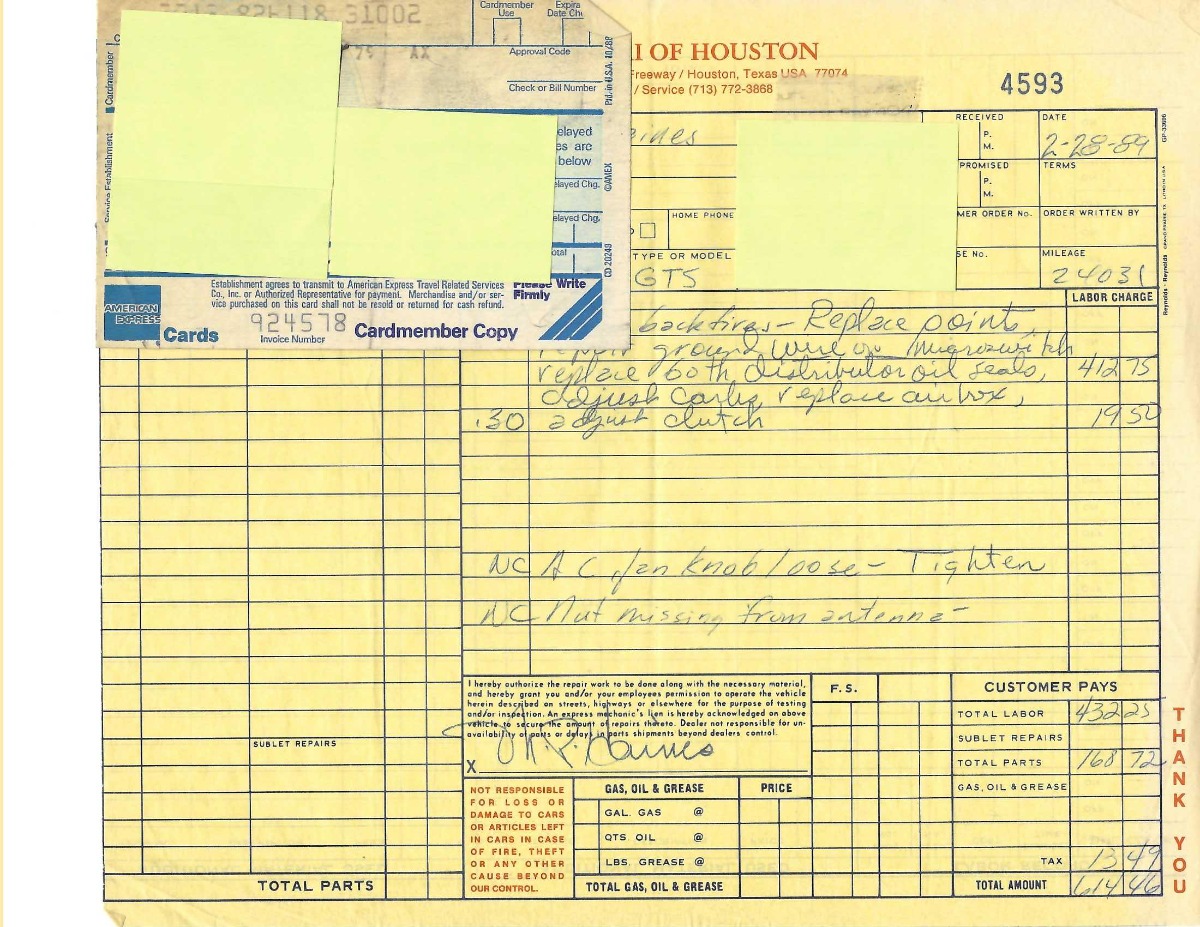 31002
Cardmember Use
Expira
Date Che
79 AX
Approval Code
Check or Bill Number
Cardmember
Service Establishment
Ptd. in U.S.A. 10/88
©AMEX
CD 20249
elayed
es are
below
elayed Chg.
elayed Chg.
otal
Establishment agrees to transmit to American Express Travel Related Services
Co., Inc. or Authorized Representative for payment. Merchandise and/or ser-
vice purchased on this card shall not be resold or returned for cash refund.
Please Write
Firmly
AMERICAN
EXPRESS
Cards
924578
Invoice Number
Cardmember Copy
I OF HOUSTON
Freeway / Houston, Texas USA 77074
/ Service (713) 772-3868
4593
RECEIVED
P.
M.
DATE
2-28-89
PROMISED
P.
M.
TERMS
HOME PHONE
MER ORDER No.
ORDER WRITTEN BY
TYPE OR MODEL
GTS
SE No.
MILEAGE
24031
LABOR CHARGE
backfires - Replace points,
repair ground wire on microswitch
replace both distributor oil seals, 412 75
adjust carbs, replace airbox,
.30 adjust clutch 19 50
NC A C fan knob loose - Tighten
NC Nut missing from antenna -
I hereby authorize the repair work to be done along with the necessary material,
and hereby grant you and/or your employees permission to operate the vehicle
herein described on streets, highways or elsewhere for the purpose of testing
and/or inspection. An express mechanic's lien is hereby acknowledged on above
vehicle to secure the amount of repairs thereto. Dealer not responsible for un-
availability of parts or delays in parts shipments beyond dealers control.
X
F.S.
CUSTOMER PAYS
TOTAL LABOR 432 25
SUBLET REPAIRS
TOTAL PARTS 168 72
GAS, OIL & GREASE
TAX 13 49
TOTAL AMOUNT 614 46
SUBLET REPAIRS
TOTAL PARTS
NOT RESPONSIBLE
FOR LOSS OR
DAMAGE TO CARS
OR ARTICLES LEFT
IN CARS IN CASE
OF FIRE, THEFT
OR ANY OTHER
CAUSE BEYOND
OUR CONTROL.
GAS, OIL & GREASE PRICE
GAL. GAS @
QTS. OIL @
LBS. GREASE @
TOTAL GAS, OIL & GREASE
THANK YOU